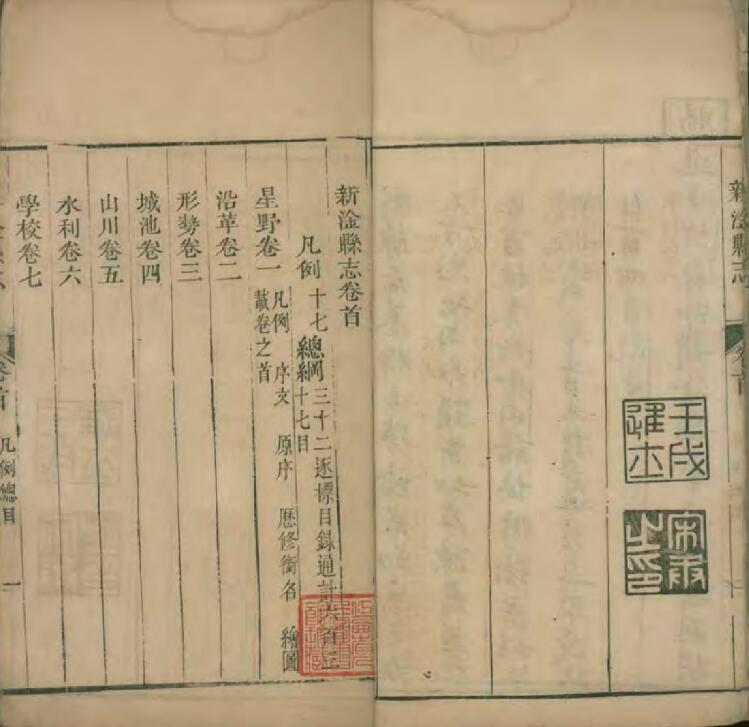 新淦縣志
卷首
壬戌進士
新淦縣志卷首
凡例十七總綱三十二逐標目錄通計六百三十七目
星野卷一凡例 序文 原序 歷修銜名 繪圖載卷之首
沿革卷二
形勢卷三
城池卷四
山川卷五
水利卷六
學校卷七
卷首
凡例總目
一